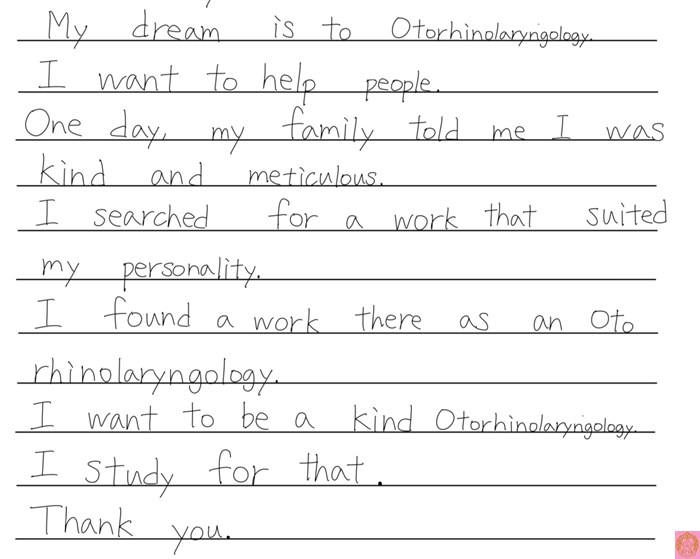 My dream is to Otorhinolaryngology.
I want to help people.
One day, my family told me I was
kind and meticulous.
I searched for a work that suited
my personality.
I found a work there as an Oto
rhinolaryngology.
I want to be a kind Otorhinolaryngology.
I study for that.
Thank you.